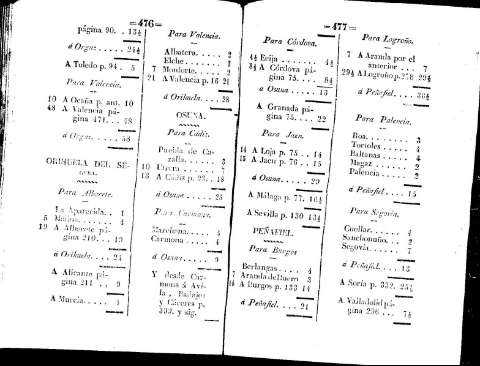 =476=
página 90. . 13½
á Orgaz. . . . . 24½
A Toledo p 94. . 5
Para Valencia.
10 A Ocaña p. ant. 10
48 A Valencia pá-
gina 471. . . 48
á Orgaz. . . . . 58
ORIHUELA DEL SE-
GURA.
Para Albacete.
La Aparecida. . 1
5 Molina. . . . 4
19 A Albacete pá-
gina 210. . . 19
á Orihuela. . . . 24
A Alicante pá-
gina 211 . . 9
A Murcia. . . . 4
Para Valencia.
Albatera. . . . 2
Elche . . . . .
7 Monforte. . . 2
21 A Valencia p. 16 21
á Orihuela. . . 28
OSUNA.
Para Cádiz.
Puebla de Ca-
zalla. . . . . 3
10 Utrera . . . .
13 A Cádiz p. 28. . 18
á Osuna . . . . 28
Para Carmona.
Marchena. . . . 4
Carmona . . . . 4
á Osuna . . . . 9
Y desde Car-
mona á Avi-
la, Badajoz
y Cáceres p.
333. y sig.
=477=
Para Córdova.
4½ Ecija . . . . . 4½
8½ A Córdova pá-
gina 75. . . . 8½
á Osuna . . . . 13
A Granada pá-
gina 75. . . . 22
Para Jaen.
14 A Loja p. 75 . . 14
15 A Jaen p. 76 . . 15
á Osuna . . . . 29
A Málaga p. 77. 16½
A Sevilla p. 130 13½
PEÑAFIEL.
Para Burgos
Berlangas. . . . 4
7 Aranda de Duero 3
14 A Burgos p. 133 14
á Peñafiel. . . . 21
Para Logroño.
7 A Aranda por el
anterior . . . 7
29½ A Logroño p. 278 29½
á Peñafiel. . . . 36½
Para Palencia.
Roa. . . . . . 3
Tortoles . . . . 4
Baltanas . . . . 4
Magaz . . . . . 2
Palencia . . . . 2
á Peñafiel . . . 15
Para Segovia.
Cuellar. . . . . 4
Sanchonuño. . . 2
Segovia. . . . . 7
á Peñafiel. . . . 13
A Soria p. 332. 25½
A Valladolid pá-
gina 236 . . . 7½